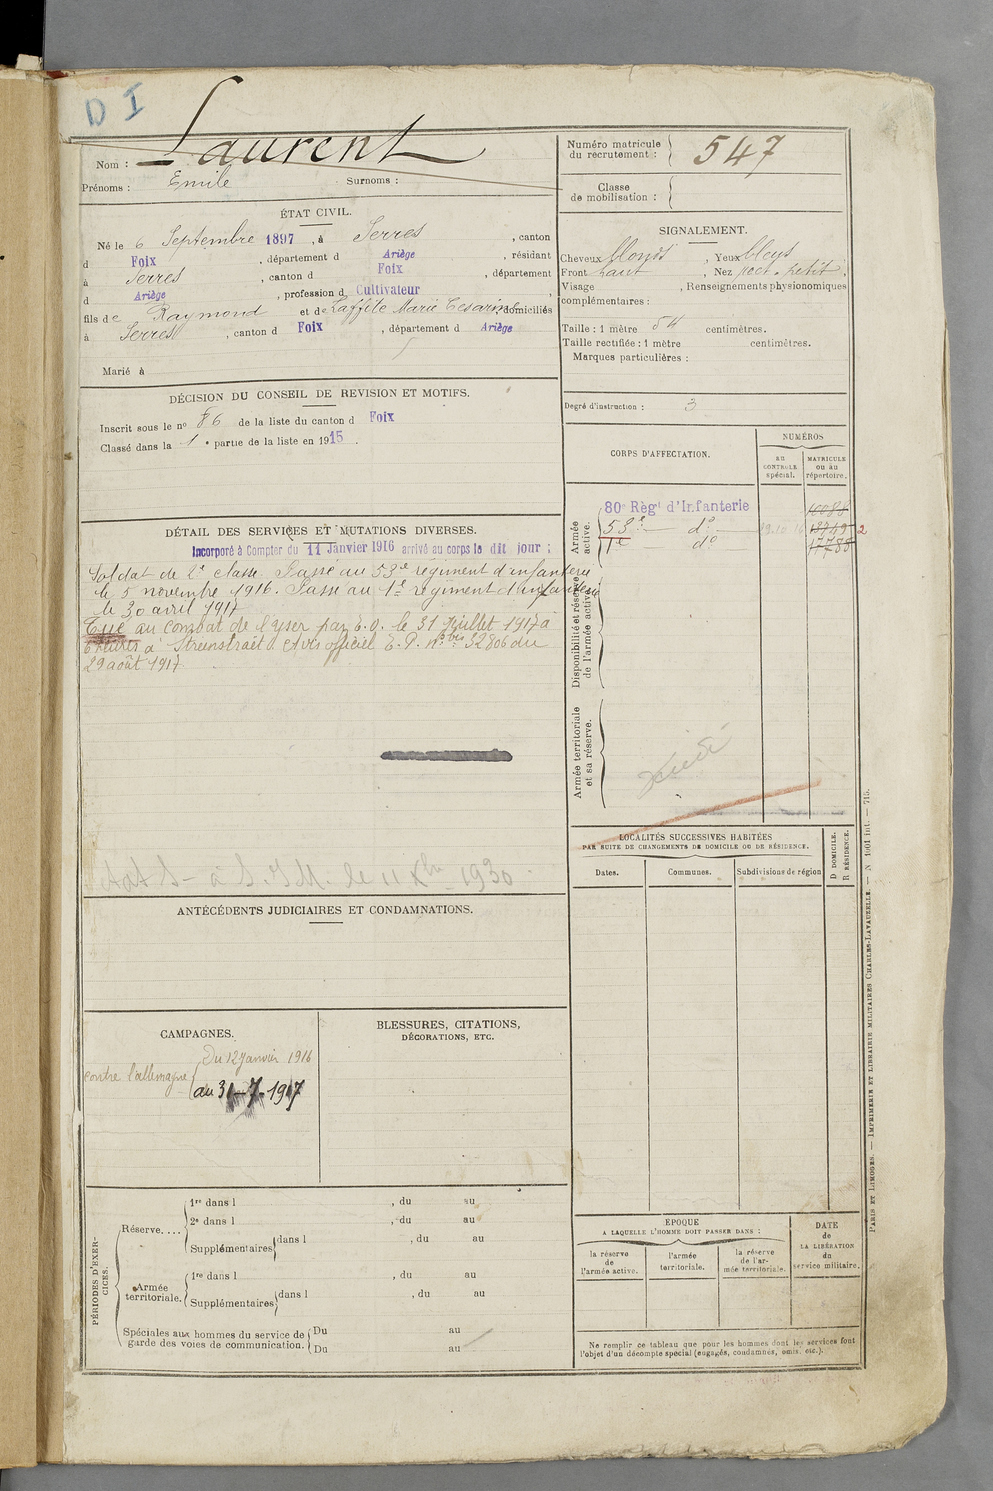 D I
Nom : Laurent
Prénoms : Emile Surnoms :
Numéro matricule du recrutement : 547
Classe de mobilisation :
ÉTAT CIVIL.
Né le 6 Septembre 1897, à Serres, canton
d Foix, département d Ariège, résidant
à Serres, canton d Foix, département
d Ariège, profession d Cultivateur,
fils de Raymond et de Laffite Marie domiciliés
à Serres, canton d Foix, département d Ariège
Marié à
SIGNALEMENT.
Cheveux blonds, Yeux bleus
Front haut, Nez rect. petit.
Visage , Renseignements physionomiques
complémentaires :
Taille : 1 mètre 54 centimètres.
Taille rectifiée : 1 mètre centimètres.
Marques particulières :
Degré d'instruction : 3
DÉCISION DU CONSEIL DE REVISION ET MOTIFS.
Inscrit sous le nº 86 de la liste du canton d Foix
Classé dans la 1e partie de la liste en 1915.
DÉTAIL DES SERVICES ET MUTATIONS DIVERSES.
Incorporé à Compter du 11 Janvier 1916 arrivé au corps le dit jour ;
Soldat de 2e classe. Passé au 53e régiment d'infanterie
le 5 novembre 1916. Passé au 1e régiment d'infanterie
le 30 avril 1917
Tué au combat de l'yser par E.O. le 31 Juillet 1917 à
6 heures à Streenstraët. Avis officiel E.P. nº bis 32806 du
29 août 1917
à S.I.M. le 11 Xbre 1930
CORPS D'AFFECTATION.
NUMÉROS
au CONTROLE spécial.
MATRICULE ou au répertoire.
Armée active.
80e Régt d'Infanterie
53e — do —
1e — do
2
Disponibilité et réserve de l'armée active.
Armée territoriale et sa réserve.
LOCALITÉS SUCCESSIVES HABITÉES
PAR SUITE DE CHANGEMENTS DE DOMICILE OU DE RÉSIDENCE.
Dates. Communes. Subdivisions de région
D DOMICILE.
R RÉSIDENCE.
ANTÉCÉDENTS JUDICIAIRES ET CONDAMNATIONS.
CAMPAGNES.
contre l'allemagne
Du 12 janvier 1916
au 31-7-1917
BLESSURES, CITATIONS,
DÉCORATIONS, ETC.
PÉRIODES D'EXERCICES.
Réserve....
1re dans l , du au
2e dans l , du au
Supplémentaires dans l , du au
Armée territoriale.
1re dans l , du au
Supplémentaires dans l , du au
Spéciales aux hommes du service de
garde des voies de communication.
Du au
Du au
EPOQUE
A LAQUELLE L'HOMME DOIT PASSER DANS :
la réserve de l'armée active.
l'armée territoriale.
la réserve de l'armée territoriale.
DATE de LA LIBÉRATION du service militaire.
Ne remplir ce tableau que pour les hommes dont les services font
l'objet d'un décompte spécial (engagés, condamnés, omis, etc.).
PARIS ET LIMOGES. — IMPRIMERIE ET LIBRAIRIE MILITAIRES CHARLES-LAVAUZELLE. — N 1001 int. — 715.